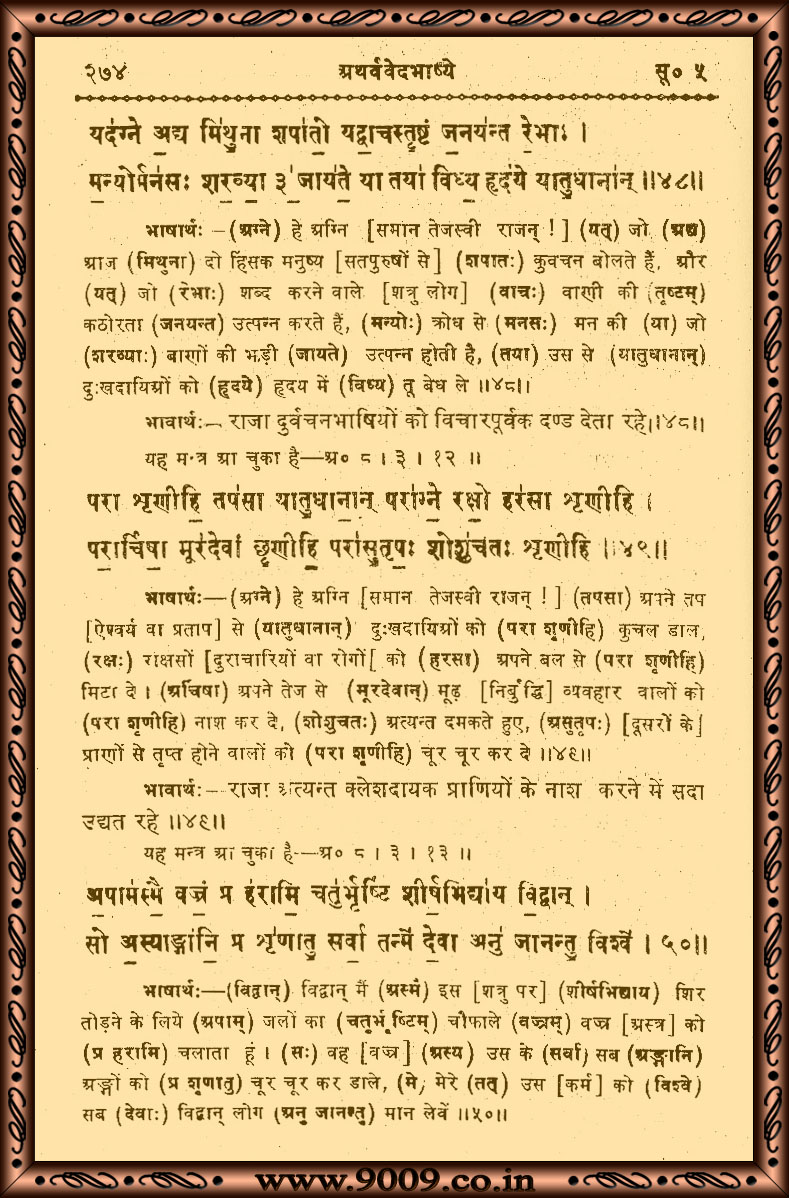 २७४ अथर्ववेदभाष्ये सू० ५
यद॑ग्ने अ॒द्य मि॑थु॒ना शपा॑तो॒ यद्वा॒चस्तृ॒ष्टं ज॒नय॑न्त रे॒भाः ।
म॒न्योर्मन॑सः शर॒व्या॒ ३॒॑ जाय॑ते॒ या तया॑ विध्य॒ हृद॑ये यातु॒धाना॑न् ॥४८॥
भाषार्थः –(अग्ने) हे अग्नि [समान तेजस्वी राजन् !] (यत्) जो (अद्य)
आज (मिथुना) दो हिंसक मनुष्य [सतपुरुषों से] (शपातः) कुवचन बोलते हैं, और
(यत्) जो (रेभाः) शब्द करने वाले [शत्रु लोग] (वाचः) वाणी की (तृष्टम्)
कठोरता (जनयन्त) उत्पन्न करते हैं, (मन्योः) क्रोध से (मनसः) मन की (या) जो
(शरव्याः) बाणों की भड़ी (जायते) उत्पन्न होती है, (तया) उस से (यातुधानान्)
दुःखदायिओं को (हृदये) हृदय में (विध्य) तू बेध ले ॥४८॥
भावार्थः— राजा दुर्वचनभाषियों को विचारपूर्वक दण्ड देता रहे॥४८॥
यह मन्त्र आ चुका है—अ० ८ । ३ । १२ ॥
परा॑ शृणीहि॒ तप॑सा यातु॒धाना॒न् परा॑ग्ने॒ रक्षो॒ हर॑सा शृणीहि ।
परा॒र्चिषा॒ मूर॑देवां छृणीहि॒ परा॑सु॒तृपः॒ शोशु॑चतः शृणीहि ॥४९॥
भाषार्थः—(अग्ने) हे अग्नि [समान तेजस्वी राजन् !] (तपसा) अपने तप
[ऐश्वर्य वा प्रताप] से (यातुधानान्) दुःखदायिओं को (परा शृणीहि) कुचल डाल,
(रक्षः) राक्षसों [दुराचारियों वा रोगों[ को (हरसा) अपने बल से (परा शृणीहि)
मिटा दे । (अर्चिषा) अपने तेज से (मूरदेवान्) मूढ़ [निर्बुद्धि] व्यवहार वालों को
(परा शृणीहि) नाश कर दे, (शोशुचतः) अत्यन्त दमकते हुए, (असुतृपः) [दूसरों के]
प्राणों से तृप्त होने वालों को (परा शृणीहि) चूर चूर कर दे ॥४९॥
भावार्थः—राजा अत्यन्त क्लेशदायक प्राणियों के नाश करने में सदा
उद्यत रहे ॥४९॥
यह मन्त्र आ चुका है—अ० ८ । ३ । १३ ॥
अ॒पाम॑स्मै॒ वज्रं॒ प्र ह॑रामि॒ चतु॑र्भृष्टिं शीर्षभिद्या॑य वि॒द्वान् ।
सो अ॒स्याङ्गा॑नि॒ प्र शृ॑णातु॒ सर्वा॒ तन्मे॑ दे॒वा अनु॑ जानन्तु॒ विश्वे॑ । ५०॥
भाषार्थः—(विद्वान्) विद्वान् मैं (अस्मै) इस [शत्रु पर] (शीर्षभिद्याय) शिर
तोड़ने के लिये (अपाम्) जलों का (चतुर्भृष्टिम्) चौफाले (वज्रम्) वज्र [अस्त्र] को
(प्र हरामि) चलाता हूं । (सः) वह [वज्र] (अस्य) उस के (सर्वा) सब (अङ्गानि)
अङ्गों को (प्र शृणातु) चूर चूर कर डाले, (मे) मेरे (तत्) उस [कर्म] को (विश्वे)
सब (देवाः) विद्वान् लोग (अनु जानन्तु) मान लेवें ॥५०॥
www.9009.co.in